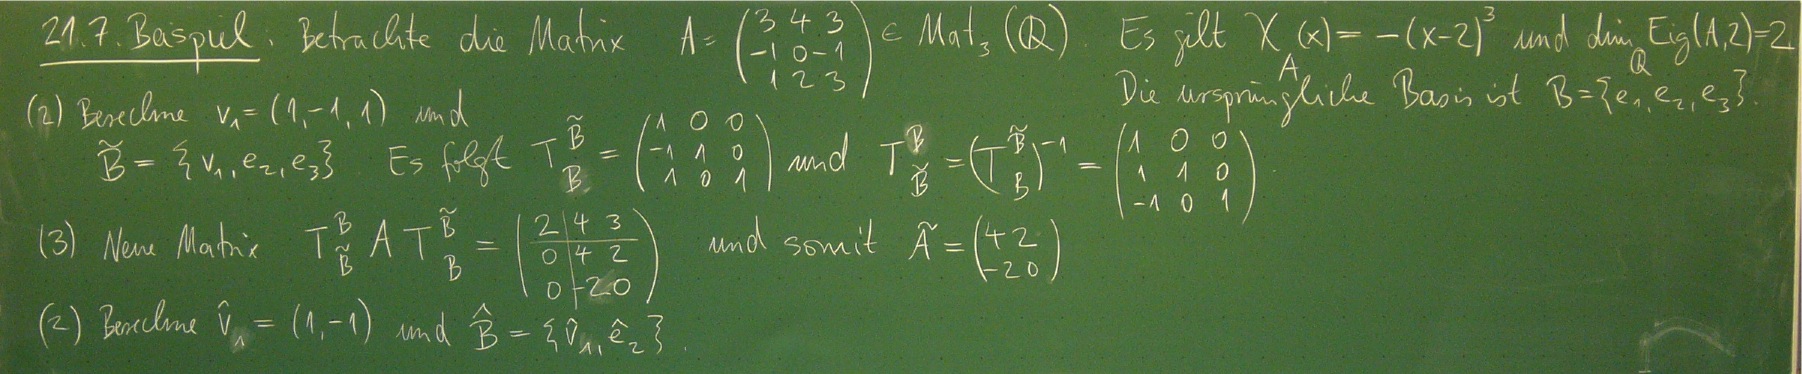 21.7. Beispiel. Betrachte die Matrix A = \begin{pmatrix} 3 & 4 & 3 \\ -1 & 0 & -1 \\ 1 & 2 & 3 \end{pmatrix} ∈ Mat_3(ℚ). Es gilt χ_A(x) = -(x-2)^3 und dim_ℚ Eig(A,2) = 2.
Die ursprüngliche Basis ist B = {e_1, e_2, e_3}.
(2) Berechne v_1 = (1, -1, 1) und
\tilde{B} = {v_1, e_2, e_3} Es folgt T^{\tilde{B}}_B = \begin{pmatrix} 1 & 0 & 0 \\ -1 & 1 & 0 \\ 1 & 0 & 1 \end{pmatrix} und T^B_{\tilde{B}} = (T^{\tilde{B}}_B)^{-1} = \begin{pmatrix} 1 & 0 & 0 \\ 1 & 1 & 0 \\ -1 & 0 & 1 \end{pmatrix}
(3) Neue Matrix T^B_{\tilde{B}} A T^{\tilde{B}}_B = \begin{pmatrix} 2 & 4 & 3 \\ 0 & 4 & 2 \\ 0 & -2 & 0 \end{pmatrix} und somit \tilde{A} = \begin{pmatrix} 4 & 2 \\ -2 & 0 \end{pmatrix}
(2) Berechne \hat{v}_1 = (1, -1) und \hat{B} = {\hat{v}_1, \hat{e}_2}.